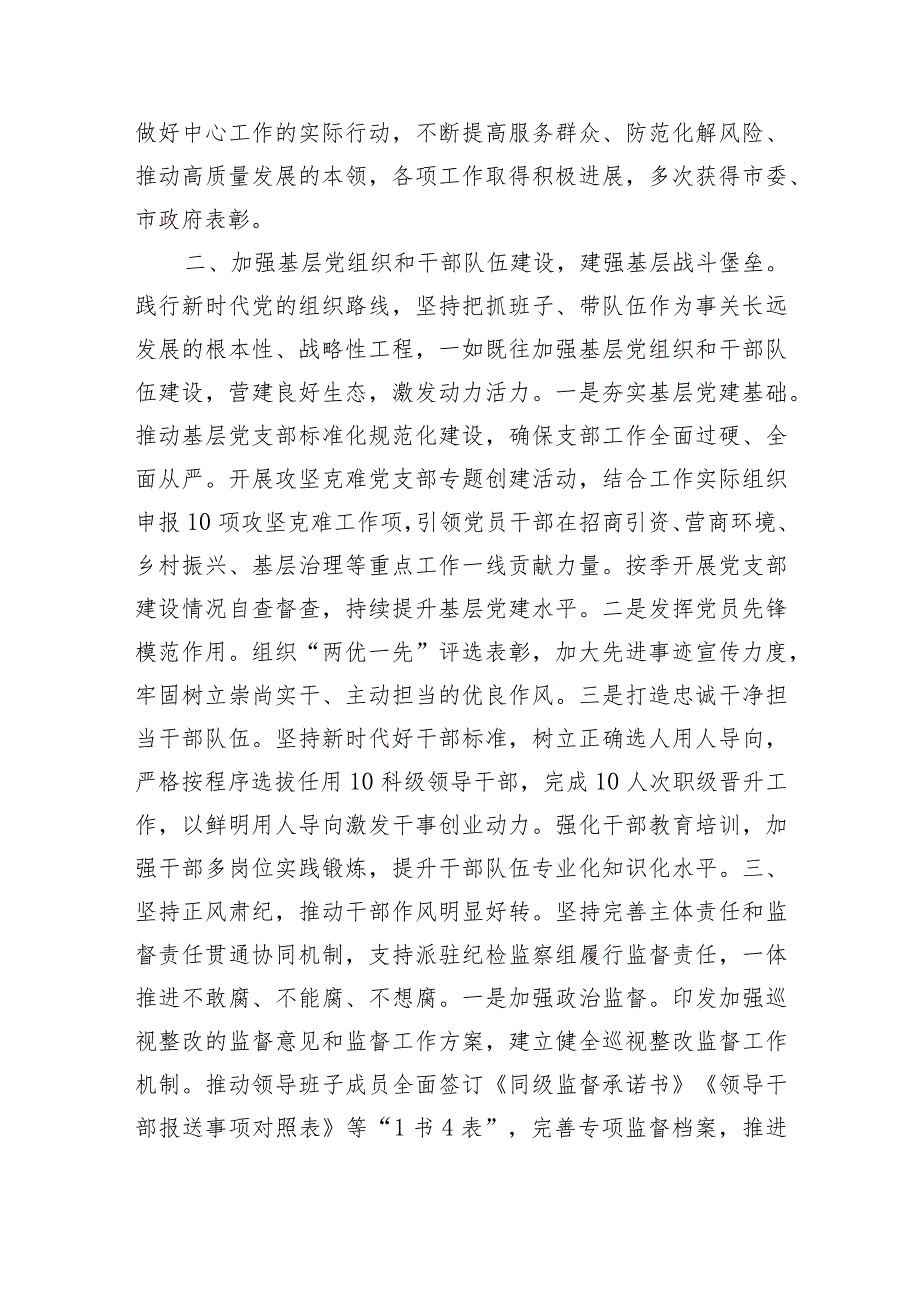 做好中心工作的实际行动，不断提高服务群众、防范化解风险、
推动高质量发展的本领，各项工作取得积极进展，多次获得市委、
市政府表彰。
二、加强基层党组织和干部队伍建设，建强基层战斗堡垒。
践行新时代党的组织路线，坚持把抓班子、带队伍作为事关长远
发展的根本性、战略性工程，一如既往加强基层党组织和干部队
伍建设，营建良好生态，激发动力活力。一是夯实基层党建基础。
推动基层党支部标准化规范化建设，确保支部工作全面过硬、全
面从严。开展攻坚克难党支部专题创建活动，结合工作实际组织
申报10项攻坚克难工作项,引领党员干部在招商引资、营商环境、
乡村振兴、基层治理等重点工作一线贡献力量。按季开展党支部
建设情况自查督查，持续提升基层党建水平。二是发挥党员先锋
模范作用。组织“两优一先”评选表彰，加大先进事迹宣传力度，
牢固树立崇尚实干、主动担当的优良作风。三是打造忠诚干净担
当干部队伍。坚持新时代好干部标准，树立正确选人用人导向，
严格按程序选拔任用10科级领导干部，完成10人次职级晋升工
作，以鲜明用人导向激发干事创业动力。强化干部教育培训，加
强干部多岗位实践锻炼，提升干部队伍专业化知识化水平。三、
坚持正风肃纪，推动干部作风明显好转。坚持完善主体责任和监
督责任贯通协同机制，支持派驻纪检监察组履行监督责任，一体
推进不敢腐、不能腐、不想腐。一是加强政治监督。印发加强巡
视整改的监督意见和监督工作方案，建立健全巡视整改监督工作
机制。推动领导班子成员全面签订《同级监督承诺书》《领导干
部报送事项对照表》等“1书4表”，完善专项监督档案，推进